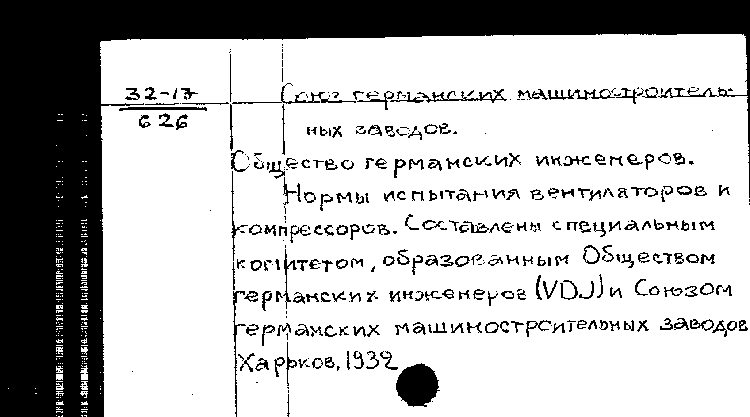 32-17
626
Союз германских машиностроитель-
ных заводов.
Общество германских инженеров.
Нормы испытания вентиляторов и
компрессоров. Составлены специальным
комитетом, образованным Обществом
германских инженеров (VDJ) и Союзом
германских машиностроительных заводов
Харьков, 1932